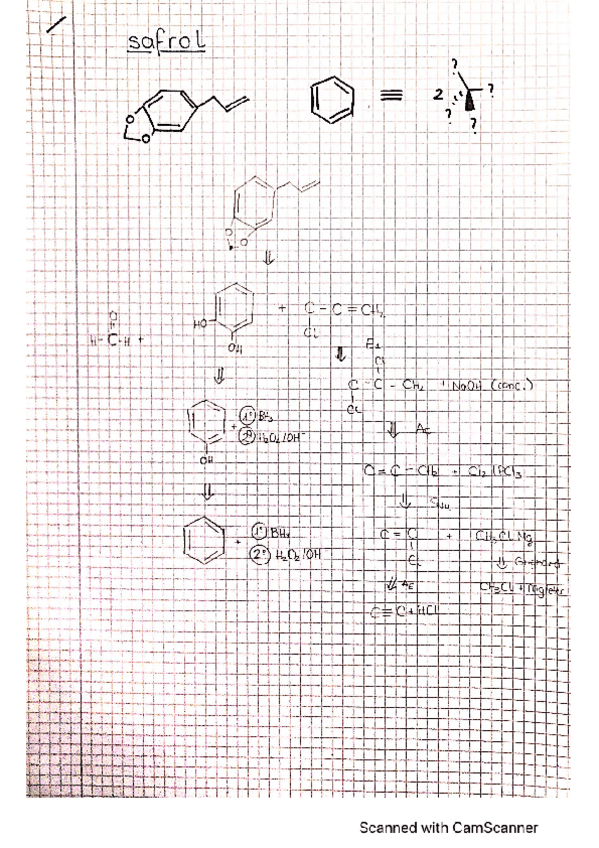 safrol
2
? ? ? ?
O
O
O O
HO
OH
+ C - C = CH₂
Cl
O
H - C - H +
E₁
Cl
C - C - CH₂ + NaOH (conc.)
Cl
+ 1° BH₃
2° H₂O₂/OH⁻
OH
AE
C = C - CH₂ + Cl₂ / PCl₃
+ 1° BH₃
2° H₂O₂/OH
C = C + CH₃ClMg
Cl
Grignard
AE
CH₃Cl +
C ≡ C + HCl
Scanned with CamScanner